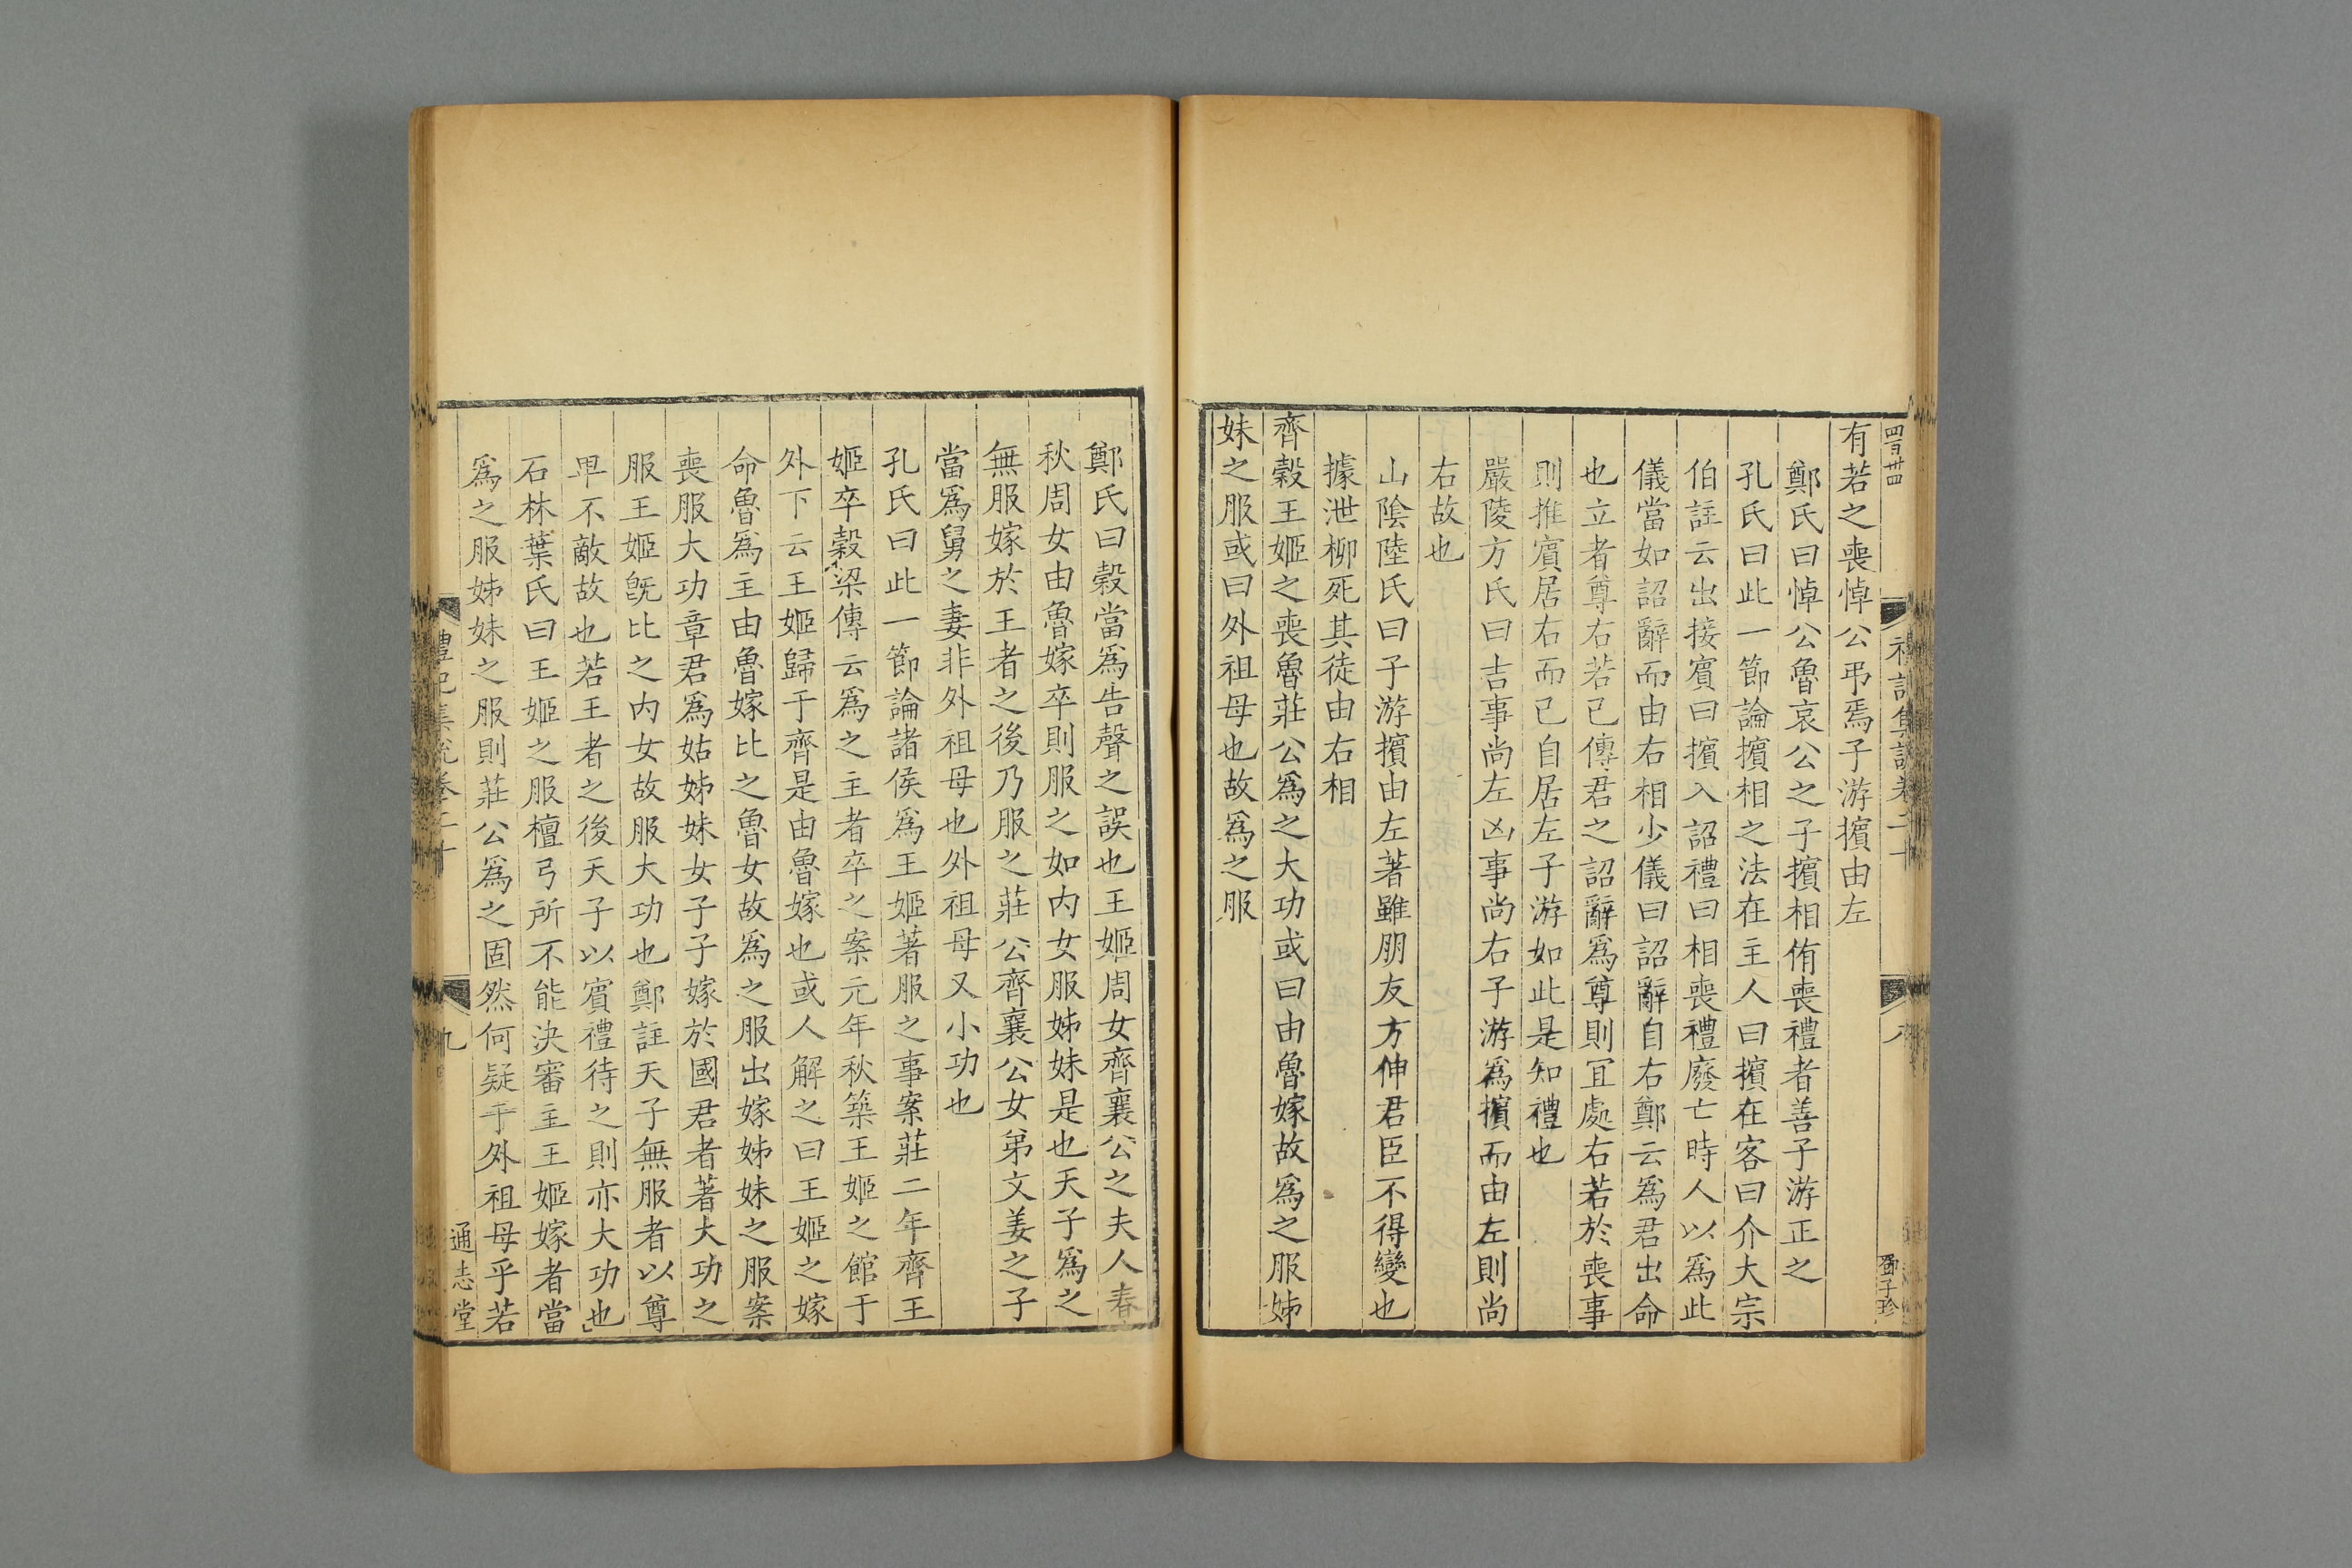 四百卅四
有若之喪悼公弔焉子游擯由左
鄭氏曰悼公魯哀公之子擯相侑喪禮者善子游正之
孔氏曰此一節論擯相之法在主人曰擯在客曰介大宗
伯註云出接賓曰擯入詔禮曰相喪禮廢亡時人以爲此
儀當如詔辭而由右相少儀曰詔辭自右鄭云爲君出命
也立者尊右若已傳君之詔辭爲尊則冝處右若於喪事
則推賓居右而已自居左子游如此是知禮也
嚴陵方氏曰吉事尚左凶事尚右子游爲擯而由左則尚
右故也
山陰陸氏曰子游擯由左著雖朋友方伸君臣不得變也
據泄柳死其徒由右相
齊穀王姬之喪魯莊公爲之大功或曰由魯嫁故爲之服姊
妹之服或曰外祖母也故爲之服
鄧子珍
鄭氏曰穀當爲告聲之誤也王姬周女齊襄公之夫人春
秋周女由魯嫁卒則服之如内女服姊妹是也天子爲之
無服嫁於王者之後乃服之莊公齊襄公女弟文姜之子
當爲舅之妻非外祖母也外祖母又小功也
孔氏曰此一節論諸侯爲王姬著服之事案莊二年齊王
姬卒穀梁傳云爲之主者卒之案元年秋築王姬之館于
外下云王姬歸于齊是由魯嫁也或人解之曰王姬之嫁
命魯爲主由魯嫁比之魯女故爲之服出嫁姊妹之服案
喪服大功章君爲姑姊妹女子子嫁於國君者著大功之
服王姬旣比之内女故服大功也鄭註天子無服者以尊
卑不敵故也若王者之後天子以賓禮待之則亦大功也
石林葉氏曰王姬之服檀弓所不能決審主王姬嫁者當
爲之服姊妹之服則莊公爲之固然何疑乎外祖母乎若
禮記集說卷二十
九
通志堂